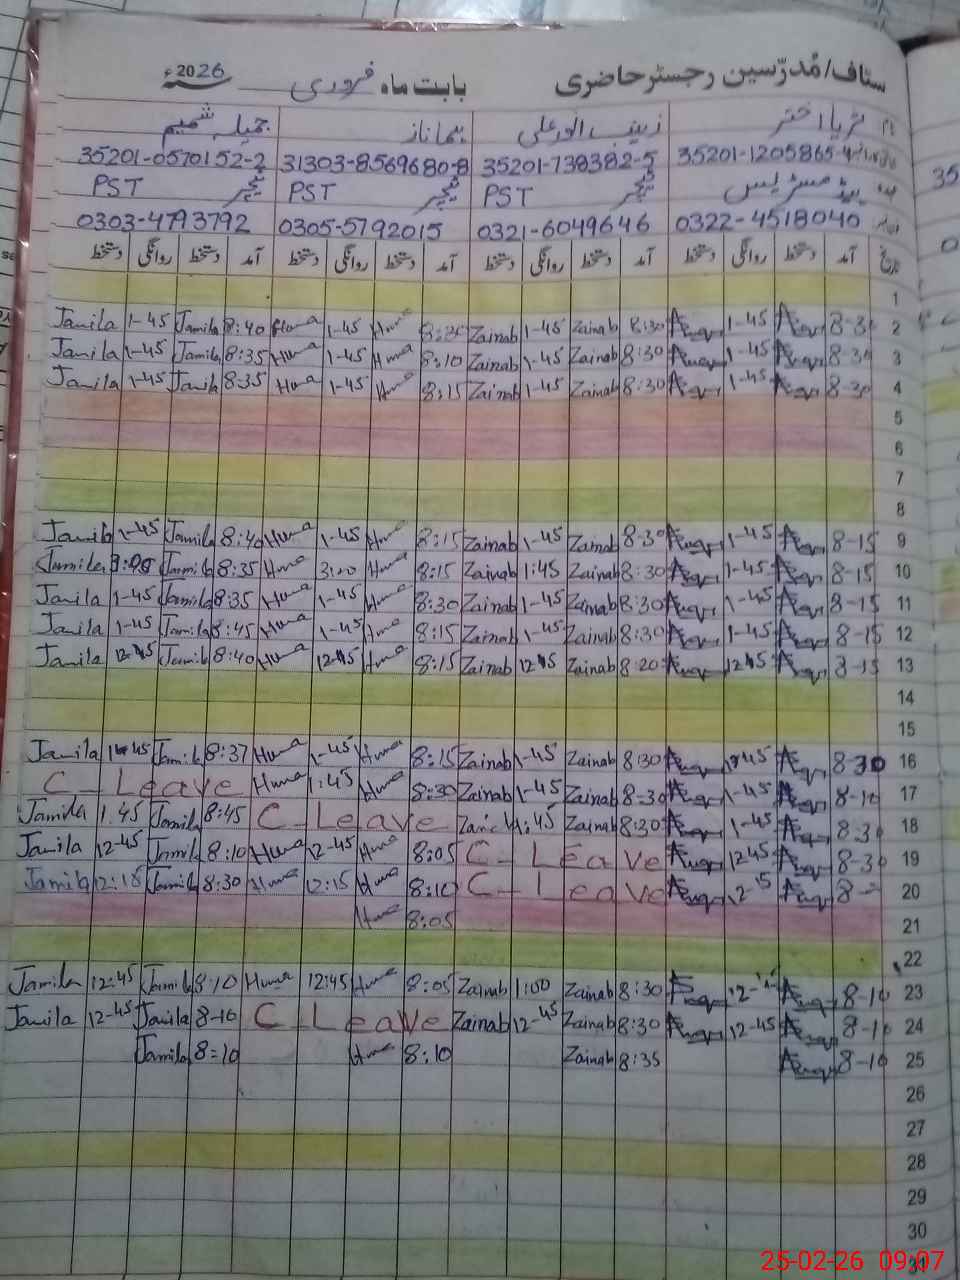 سٹاف/مُدرّسین رجسٹر حاضری بابت ماہ فروری 2026ء
نام ثریا اختر زینب انور علی ہما ناز جمیلہ شمیم
35201-1205865-4 35201-738382-5 31303-8569680-8 35201-0570152-2
عہدہ ہیڈ مسٹریس ٹیچر PST ٹیچر PST ٹیچر PST
0322-4518040 0321-6049646 0305-5792015 0303-4793792
تاریخ آمد دستخط روانگی دستخط آمد دستخط روانگی دستخط آمد دستخط روانگی دستخط آمد دستخط روانگی دستخط
1
Jamila 1-45 Jamila 8:40 Huma 1-45 Huma 8:30 Zainab 1-45 Zainab 8:30 1-45 8-30 2
Jamila 1-45 Jamila 8:35 Huma 1-45 Huma 8:10 Zainab 1-45 Zainab 8:30 1-45 8-30 3
Jamila 1-45 Jamila 8-35 Huma 1-45 Huma 8:15 Zainab 1-45 Zainab 8:30 1-45 8-30 4
5
6
7
8
Jamila 1-45 Jamila 8:40 Huma 1-45 Huma 8:15 Zainab 1-45 Zainab 8-30 1-45 8-15 9
Jamila Jamila 8:35 Huma 3:20 Huma 8:15 Zainab 1:45 Zainab 8:30 1-45 8-15 10
Jamila 1-45 Jamila 8:35 Huma 1-45 Huma 8:30 Zainab 1-45 Zainab 8:30 1-45 8-15 11
Jamila 1-45 Jamila 8:45 Huma 1-45 Huma 8:15 Zainab 1-45 Zainab 8:30 1-45 8-15 12
Jamila 12-45 Jamila 8:40 Huma 12-45 Huma 8:15 Zainab 12-45 Zainab 8:20 12-45 8-15 13
14
15
Jamila 1-45 Jamila 8:37 Huma 1-45 Huma 8:15 Zainab 1-45 Zainab 8:30 1-45 8-30 16
C-Leave Huma 1:45 Huma 8:30 Zainab 1-45 Zainab 8-30 1-45 8-10 17
Jamila 1.45 Jamila 8:45 C-Leave Zainab 1:45 Zainab 8:30 1-45 8-30 18
Jamila 12-45 Jamila 8:10 Huma 12-45 Huma 8:05 C-Leave 12-45 8-30 19
Jamila 12:15 Jamila 8:30 Huma 12:15 Huma 8:10 C-Leave 12-15 20
Huma 8:05 21
22
Jamila 12:45 Jamila 8:10 Huma 12:45 Huma 8:05 Zainab 1:00 Zainab 8:30 8-10 23
Jamila 12-45 Jamila 8-10 C-Leave Zainab 12-45 Zainab 8:30 12-45 8-10 24
Jamila 8=10 Huma 8:10 Zainab 8:35 8-10 25
26
27
28
29
30
31
25-02-26 09:07